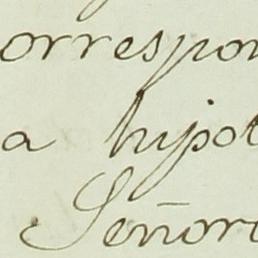 orrespon
a hipot
Señor